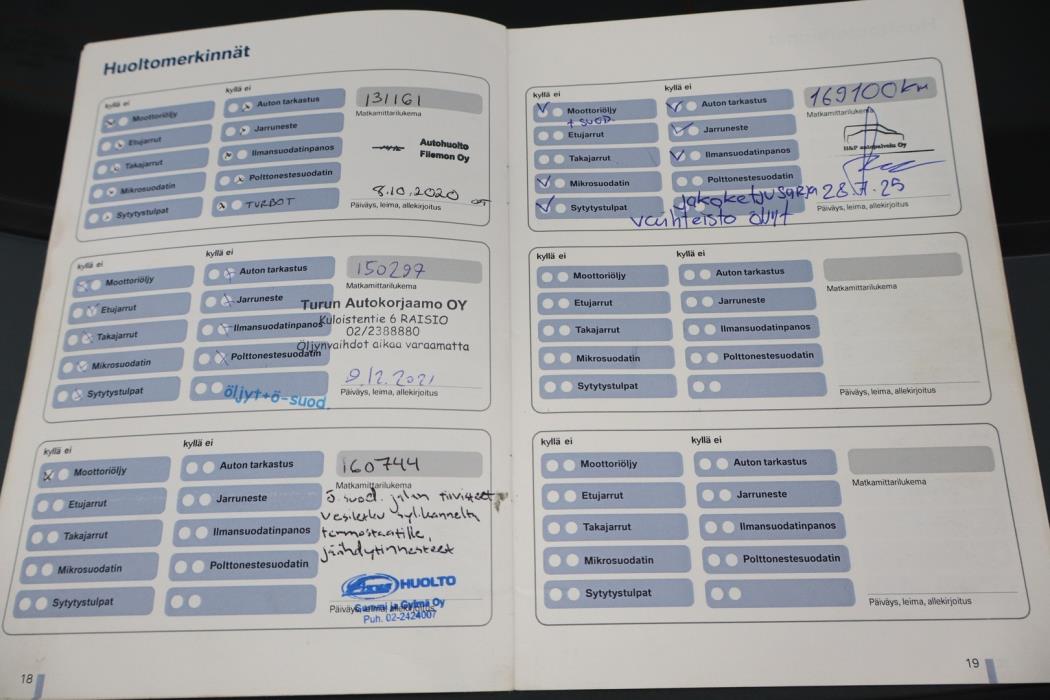 Huoltomerkinnät
kyllä ei
kyllä ei
Moottoriöljy
Auton tarkastus
131161
Matkamittarilukema
Etujarrut
Jarruneste
Autohuolto
Filemon Oy
Takajarrut
Ilmansuodatinpanos
Mikrosuodatin
Polttonestesuodatin
8.10.2020
Sytytystulpat
TURBOT
Päiväys, leima, allekirjoitus
kyllä ei
kyllä ei
Moottoriöljy
Auton tarkastus
150297
Matkamittarilukema
Etujarrut
Jarruneste
Turun Autokorjaamo OY
Kuloistentie 6 RAISIO
02/2388880
Öljynvaihdot aikaa varaamatta
Takajarrut
Ilmansuodatinpanos
Mikrosuodatin
Polttonestesuodatin
9.12.2021
Sytytystulpat
öljyt+ö-suod.
Päiväys, leima, allekirjoitus
kyllä ei
kyllä ei
Moottoriöljy
Auton tarkastus
160744
Matkamittarilukema
Etujarrut
Jarruneste
Ö.suod. jalan tiivisteet
Vesiletku sylikannelta
termostaatille,
jäähdytinnesteet
Takajarrut
Ilmansuodatinpanos
Mikrosuodatin
Polttonestesuodatin
HUOLTO
Sytytystulpat
Päiväys, leima, allekirjoitus
Gummi ja Pyörä Oy
Puh. 02-2424007
18
kyllä ei
kyllä ei
Moottoriöljy
+ SUOD.
Auton tarkastus
169100km
Matkamittarilukema
Etujarrut
Jarruneste
H&P autopalvelu Oy
Takajarrut
Ilmansuodatinpanos
Mikrosuodatin
Polttonestesuodatin
Sytytystulpat
jakoketjusarja 28.7.25
vaihteisto öljyt
Päiväys, leima, allekirjoitus
Moottoriöljy
Auton tarkastus
Matkamittarilukema
Etujarrut
Jarruneste
Takajarrut
Ilmansuodatinpanos
Mikrosuodatin
Polttonestesuodatin
Sytytystulpat
Päiväys, leima, allekirjoitus
kyllä ei
kyllä ei
Moottoriöljy
Auton tarkastus
Matkamittarilukema
Etujarrut
Jarruneste
Takajarrut
Ilmansuodatinpanos
Mikrosuodatin
Polttonestesuodatin
Sytytystulpat
Päiväys, leima, allekirjoitus
19